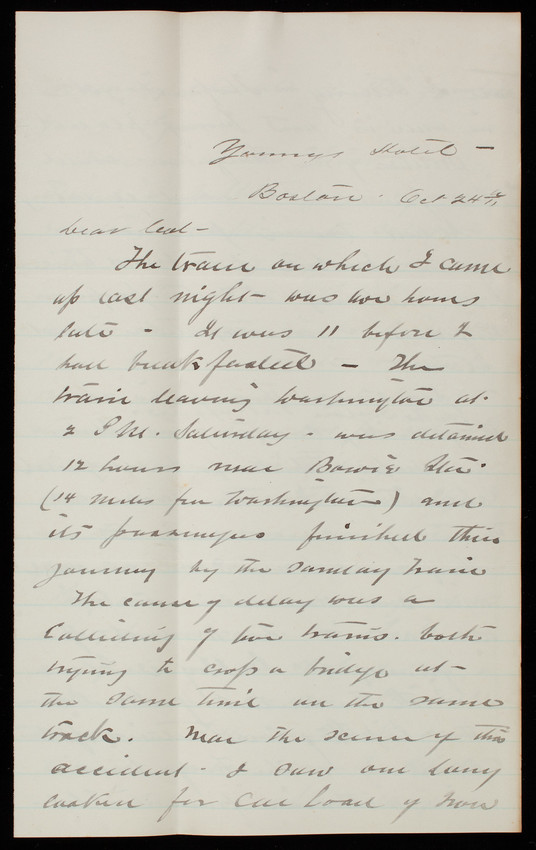 Youngs Hotel -
Boston. Oct 24th
Dear Col -
The train on which I came
up last night - was two hours
late - It was 11 before I
had breakfasted - The
train leaving Washington at
2 P.M. Saturday - was detained
12 hours near Bowie Sta.
(14 miles fr Washington) and
its passengers finished their
journey by the Sunday train
The cause of delay was a
Colliding of two trains. both
trying to cross a bridge at
the same time on the same
track. Near the scene of this
accident - I saw one long
car load of